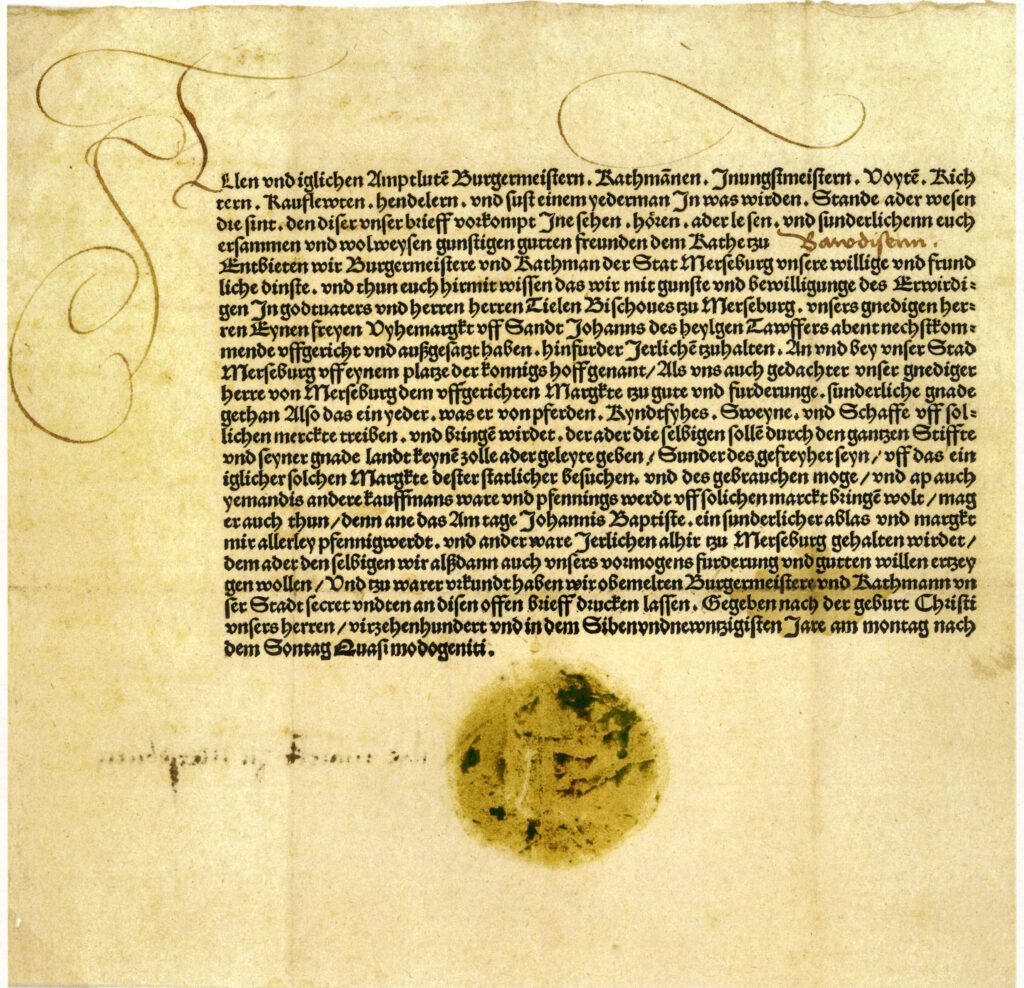 Allen vnd iglichen Amptlutē Burgermeistern. Rathmāñen. Inungstmeistern. Voytē. Rich
tern. Kauflewten. hendelern. vnd sust einem yederman In was wirden. Stande ader wesen
die sint. den diser vnser brieff vorkompt Jne sehen. hören. ader lesen. vnd sunderlichenn euch
ersammen vnd wolweysen gunstigen gutten freunden dem Rathe tzu Bawdisenn.
Entbieten wir Burgermeistere vnd Rathman der Stat Merseburg vnsere willige vnd frund
liche dinste. vnd thun euch hirmit wissen das wir mit gunste vnd bewilligunge des Erwirdi-
gen In godtuaters vnd herren herren Tielen Bischoues tzu Merseburg. vnsers gnedigen her-
ren Eynen freyen Vyhemargkt vff Sandt Johanns des heylgen Tawffers abent nechstkom-
mende vffgericht vnd außgesatzt haben. hinfurder Jerlichē tzuhalten. An vnd bey vnser Stad
Merseburg vff eynem platze der konnigs hoff genant/ Als vns auch gedachter vnser gnediger
herre von Merseburg dem vffgerichten Margkte tzu gute vnd furderunge. sunderliche gnade
gethan Also das ein yeder. was er von pferden. Ryndtfyhes. Sweyne. vnd Schaffe vff sol-
lichen merckte treiben. vnd bringē wirdet. der ader die selbigen sollē durch den gantzen Stiffte
vnd seyner gnade landt keynē zolle ader geleyte geben/ Sunder des gefreyhet seyn/ vff das ein
iglicher solchen Margkte dester statlicher besuchen. vnd des gebrauchen moge/ vnd ap auch
yemandis andere kauffmans ware vnd pfennings werdt vff solichen marckt bringē wolt/ mag
er auch thun/ denn ane das Am tage Johannis Baptiste. ein sunderlicher ablas vnd margkt
mir allerley pfennigwerdt. vnd ander ware Jerlichen alhir tzu Merseburg gehalten wirdet/
dem ader den selbigen wir alßdann auch vnsers vormogens furderung vnd gutten willen ertzey
gen wollen/ Vnd tzu warer vrkundt haben wir obemelten Burgermeistere vnd Rathmann vn
ser Stadt secret vndten an disen offen brieff drucken lassen. Gegeben nach der geburt Christi
vnsers herren/ virzehenhundert vnd in dem Sibenvndnewntzigisten Jare am montag nach
dem Sontag Quasimodogeniti.